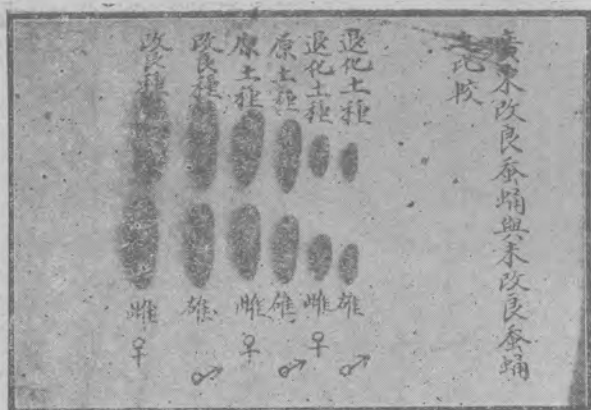 廣東改良蚕蛹與未改良蚕蛹
之比較
退化土種
退化土種
原土種
原土種
改良種
改良種
雄
雌
雄
雌
雄
雌
♂
♀
♂
♀
♂
♀